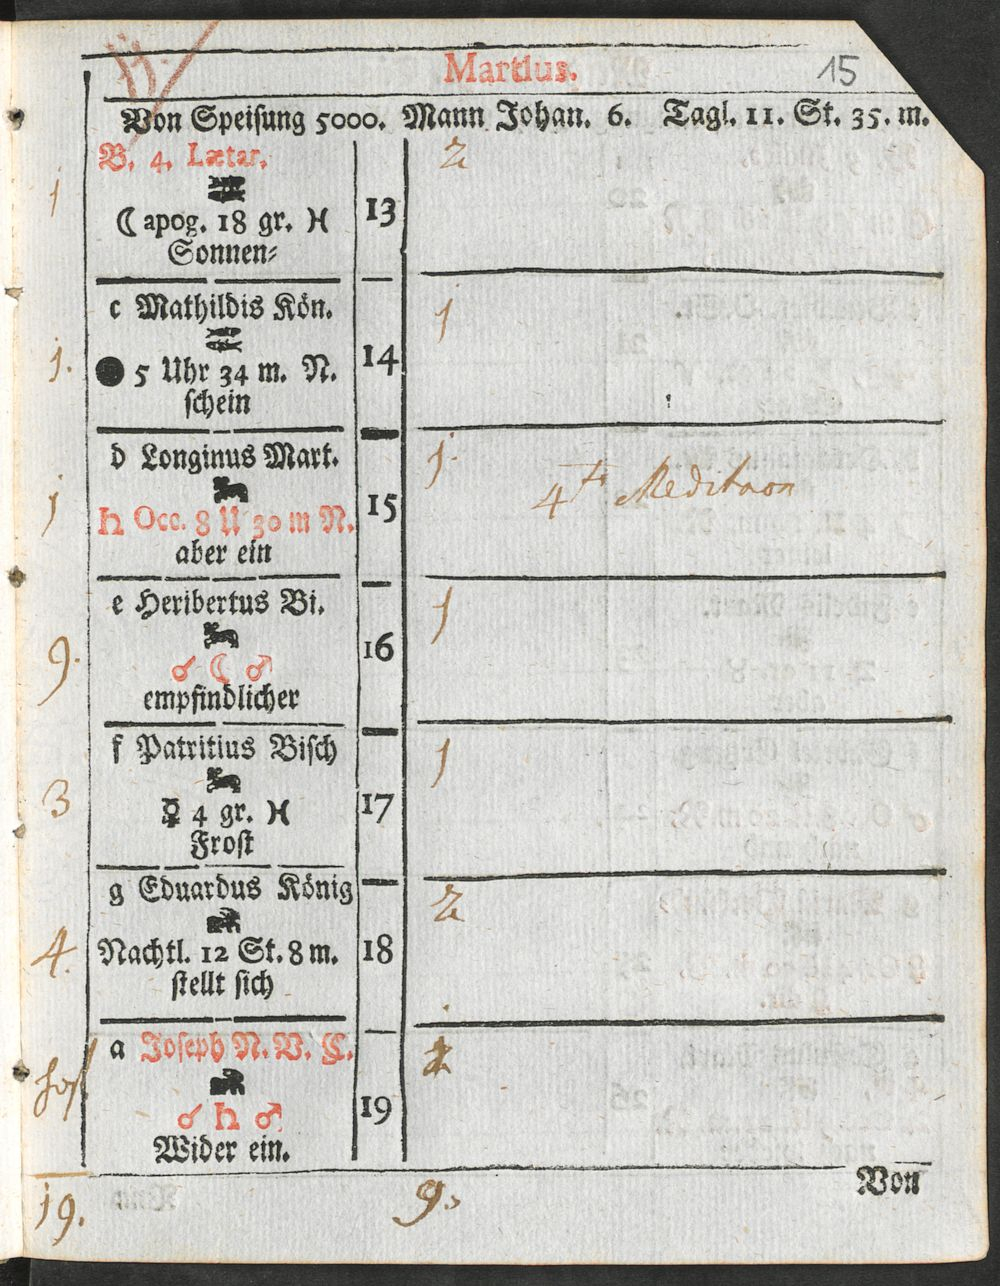 Martius.
15
Von Speisung 5000. Mann Johan. 6. Tagl. 11. St. 35. m.
B. 4. Lætar.
2
1
☾ apog. 18 gr. ♓
13
Sonnen-
c Mathildis Kön.
1
1.
● 5 Uhr 34 m. N.
14
schein
d Longinus Mart.
1.
1
♄ Occ. 8 U 30 m N.
15
aber ein
e Heribertus Bi.
1
9.
☌ ☾ ♂
16
empfindlicher
f Patritius Bisch
1
3
☿ 4 gr. ♓
17
Frost
g Eduardus König
2
4.
Nachtl. 12 St. 8 m.
18
stellt sich
a Joseph N. V. C.
2
☌ ♄ ♂
19
Wider ein.
Von
19.
9.